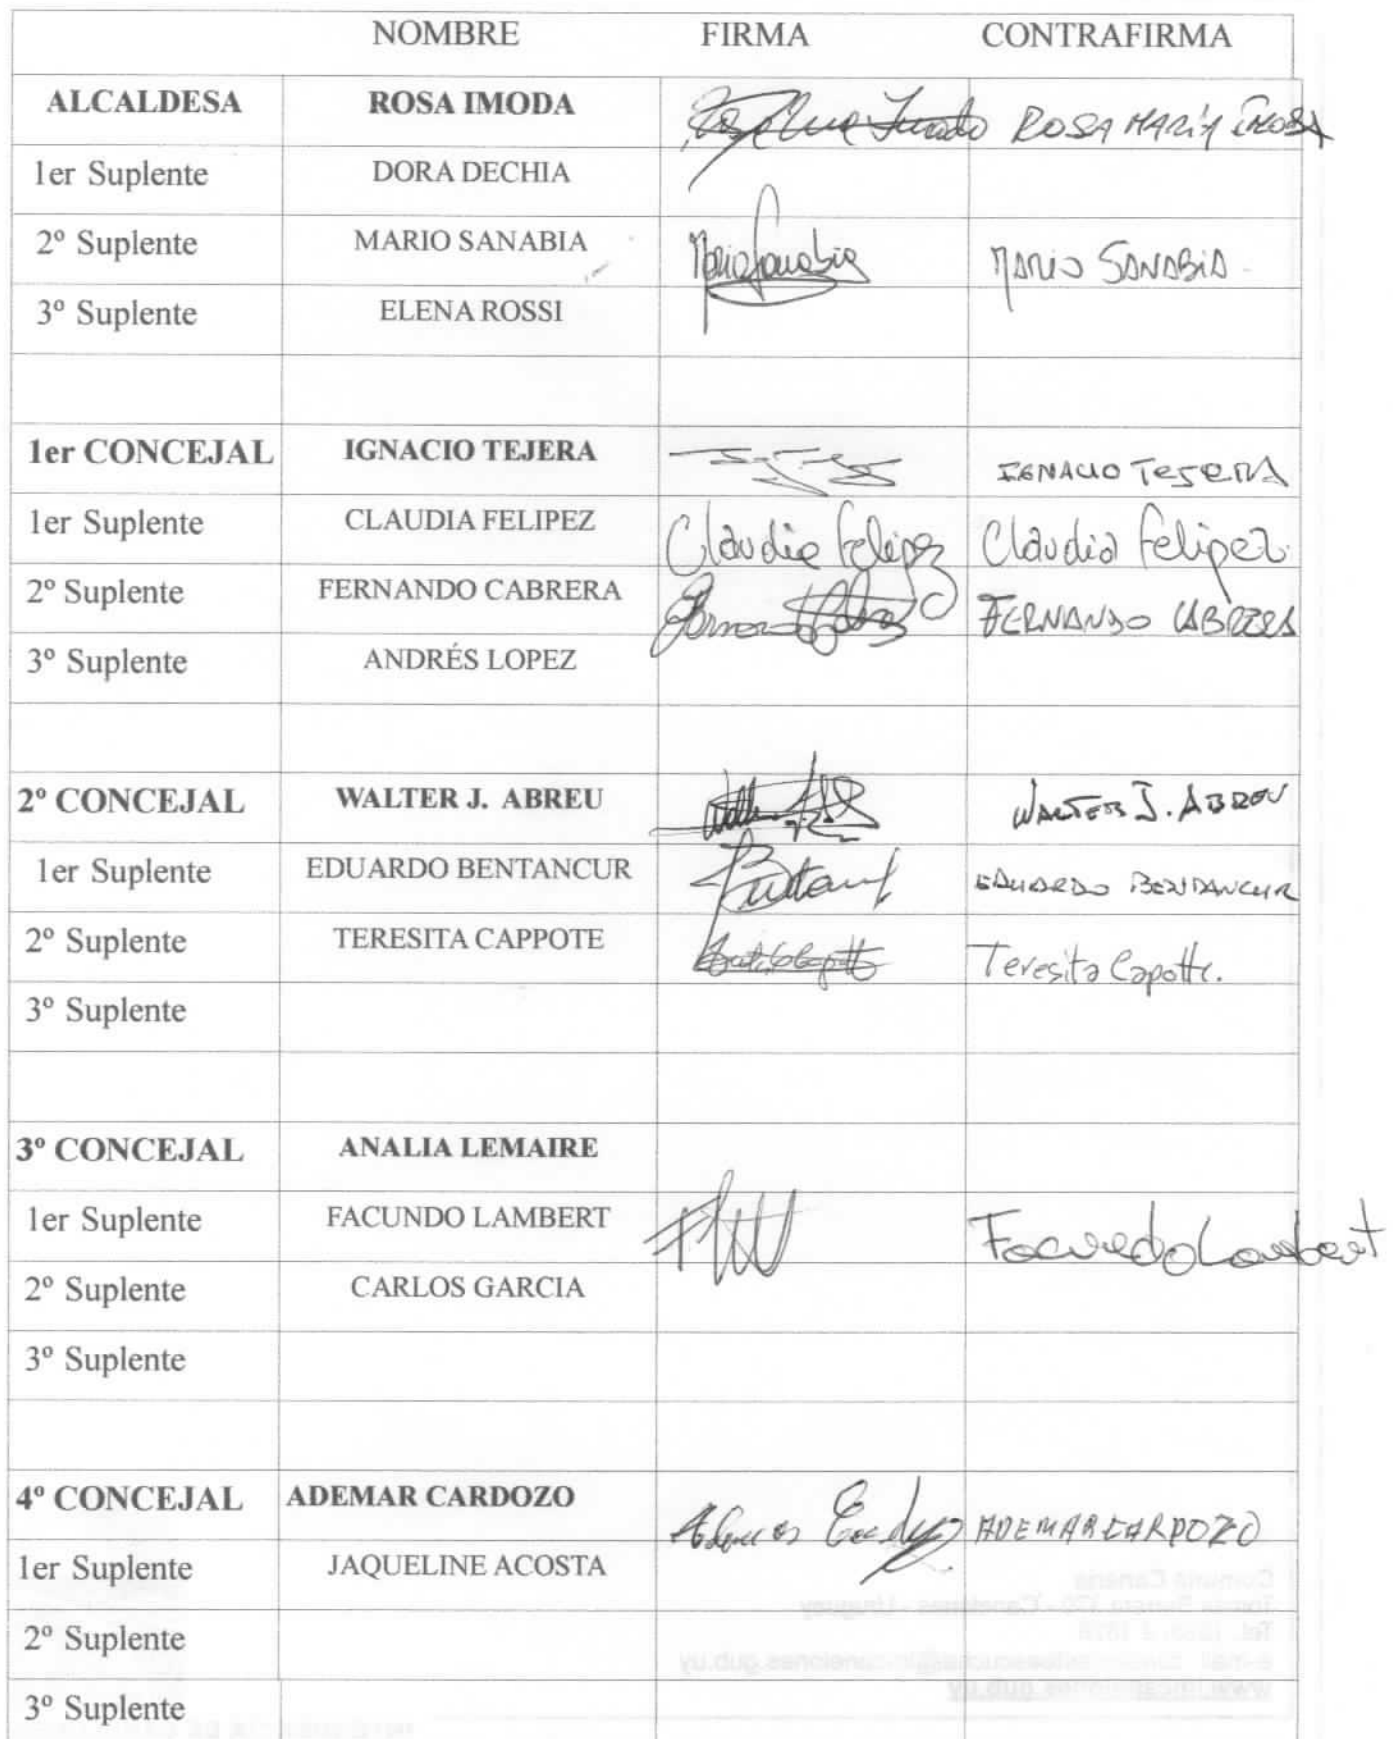 NOMBRE FIRMA CONTRAFIRMA
ALCALDESA ROSA IMODA ROSA MARÍA IMODA
1er Suplente DORA DECHIA
2º Suplente MARIO SANABIA Mario Sanabia MARIO SANABIA
3º Suplente ELENA ROSSI
1er CONCEJAL IGNACIO TEJERA IGNACIO TEJERA
1er Suplente CLAUDIA FELIPEZ Claudia Felipez Claudia Felipez
2º Suplente FERNANDO CABRERA FERNANDO CABRERA
3º Suplente ANDRÉS LOPEZ
2º CONCEJAL WALTER J. ABREU WALTER J. ABREU
1er Suplente EDUARDO BENTANCUR EDUARDO BENTANCUR
2º Suplente TERESITA CAPPOTE Teresita Capotte.
3º Suplente
3º CONCEJAL ANALIA LEMAIRE
1er Suplente FACUNDO LAMBERT Facundo Lambert
2º Suplente CARLOS GARCIA
3º Suplente
4º CONCEJAL ADEMAR CARDOZO ADEMAR CARDOZO
1er Suplente JAQUELINE ACOSTA
2º Suplente
3º Suplente